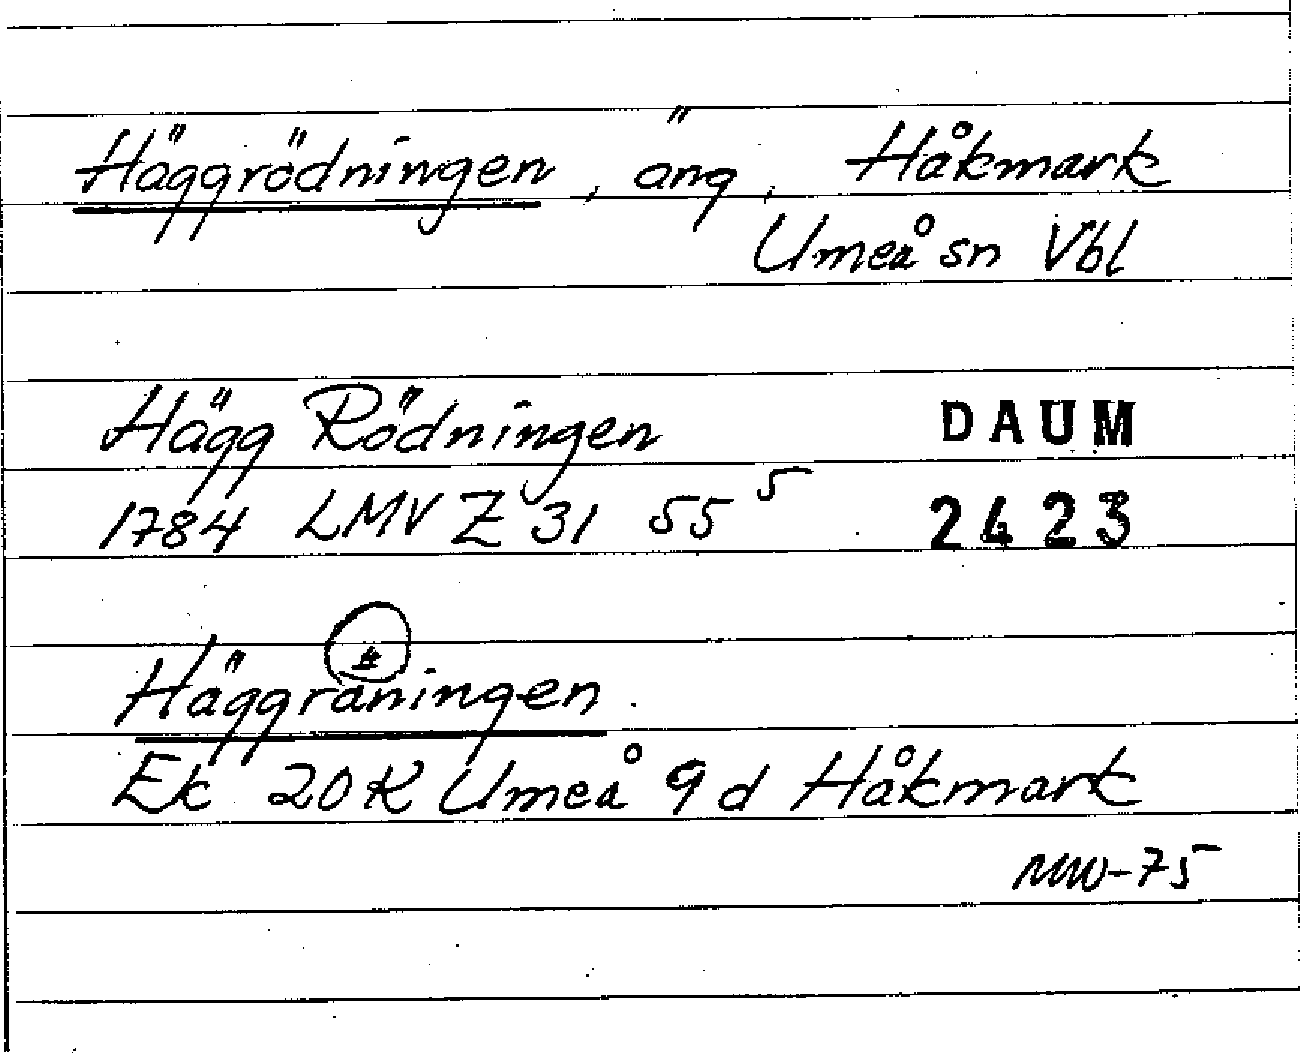 Häggrödningen, äng, Håkmark
Umeå sn Vbl
Hägg Rödningen
DAUM
1784 LMV Z 31 55 5
2423
Häggräningen.
Ek 20K Umeå 9d Håkmark
MW-75